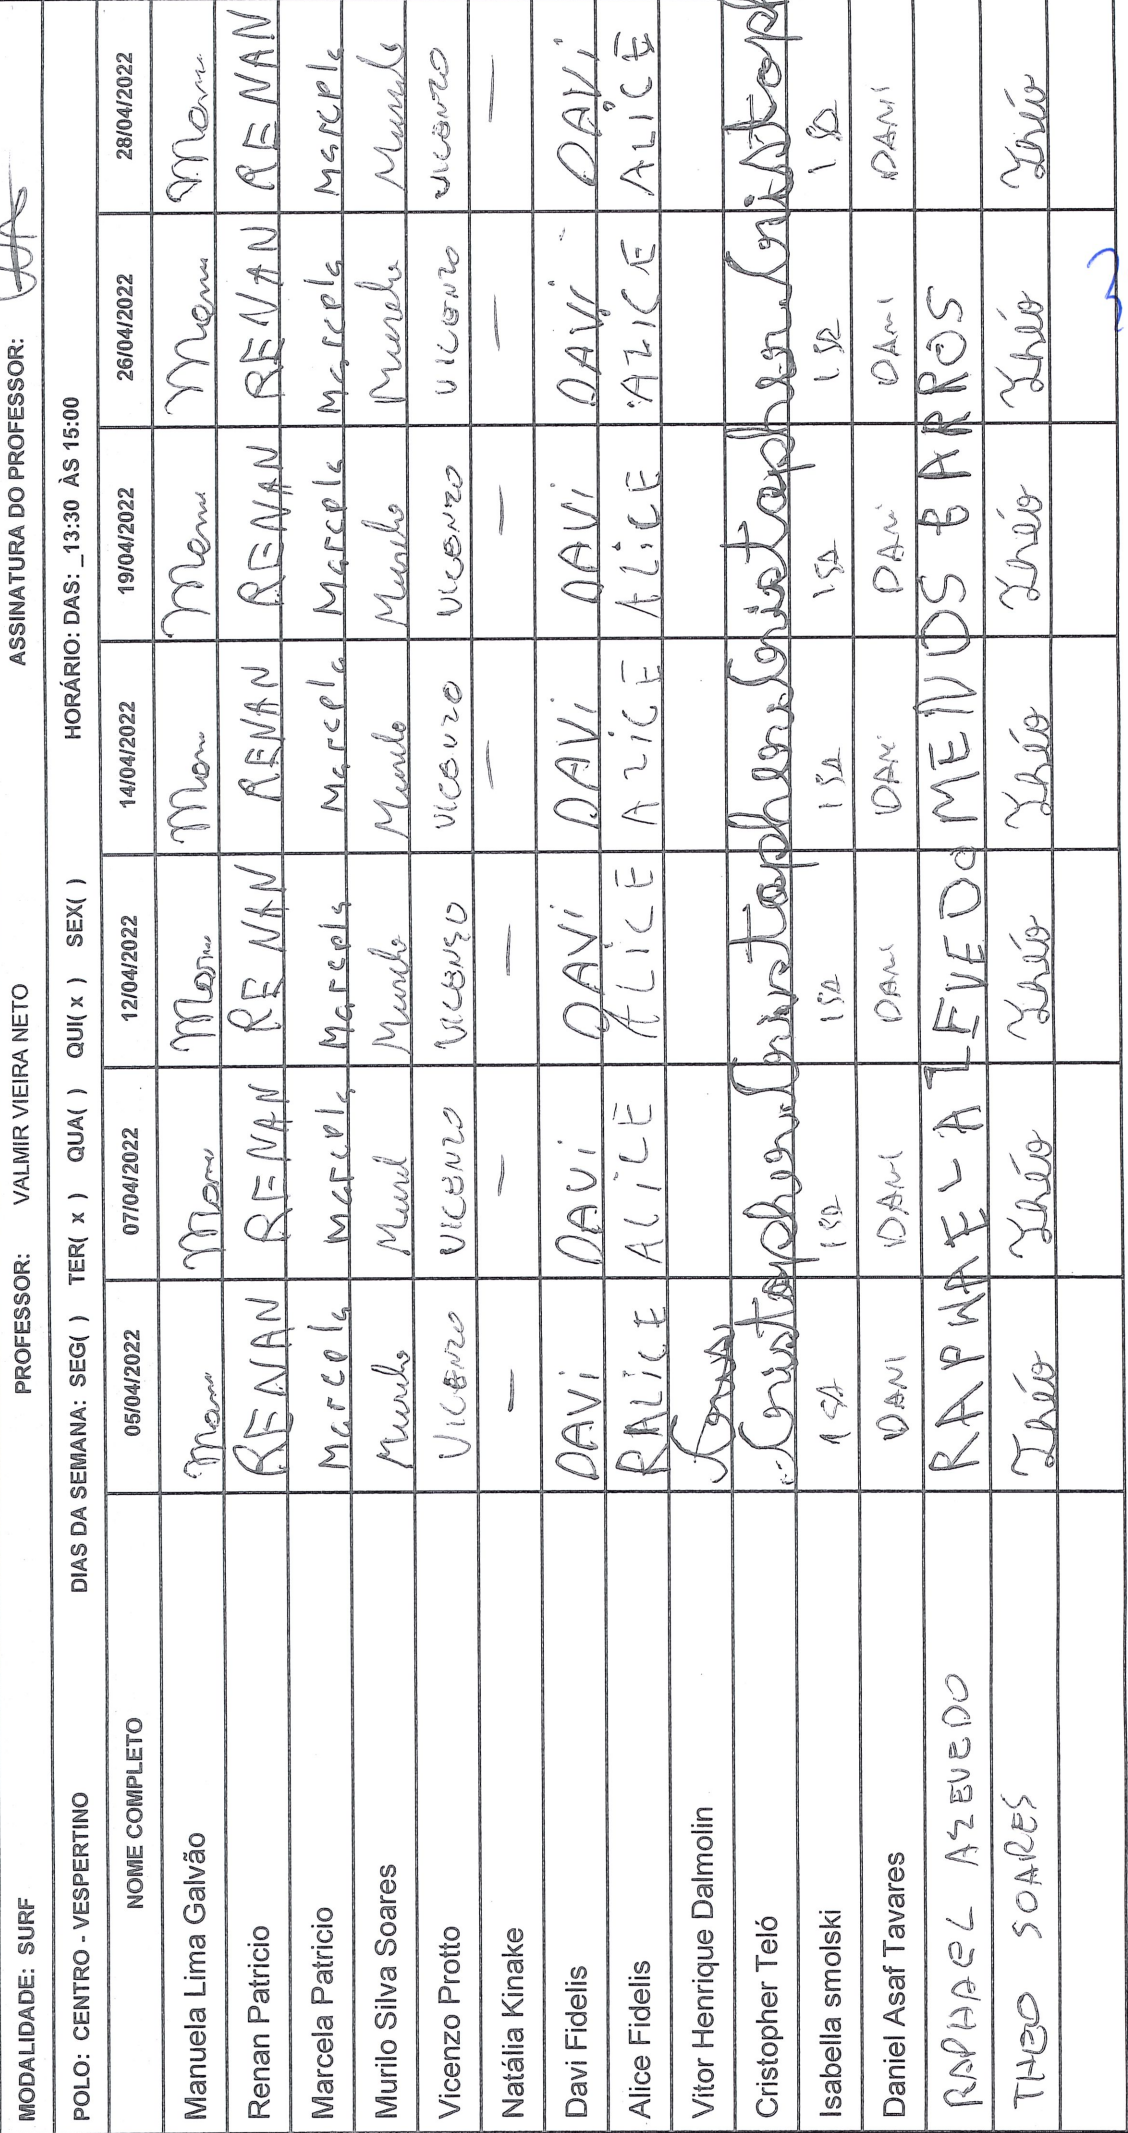 MODALIDADE: SURF PROFESSOR: VALMIR VIEIRA NETO ASSINATURA DO PROFESSOR:
POLO: CENTRO - VESPERTINO DIAS DA SEMANA: SEG( ) TER( x ) QUA( ) QUI( x ) SEX( ) HORÁRIO: DAS: _13:30 ÀS 15:00
NOME COMPLETO 05/04/2022 07/04/2022 12/04/2022 14/04/2022 19/04/2022 26/04/2022 28/04/2022
Manuela Lima Galvão Manu Manu Manu Manu Manu Manu Manu
Renan Patricio RENAN RENAN RENAN RENAN RENAN RENAN RENAN
Marcela Patricio Marcela Marcela Marcela Marcela Marcela Marcela Marcela
Murilo Silva Soares Murilo Muril Murilo Murilo Murilo Murilo Murilo
Vicenzo Protto VICENZO VICENZO VICENZO VICENZO VICENZO VICENZO VICENZO
Natália Kinake — — — — — — —
Davi Fidelis DAVi DAVi DAVi DAVi DAVi DAVi DAVi
Alice Fidelis RALiCE ALiCE ALiCE ALiCE ALiCE ALiCE ALiCE
Vitor Henrique Dalmolin
Cristopher Teló Cristopher Cristopher Cristopher Cristopher Cristopher Cristoph
Isabella smolski ISA ISA ISA ISA ISA ISA ISA
Daniel Asaf Tavares DANI DANI DANI DANI DANI DANI DANI
RAPHAEL AZEVEDO RAPHAEL AZEVEDO MENDS BARROS
THEO SOARES Théo Théo Théo Théo Théo Théo Théo